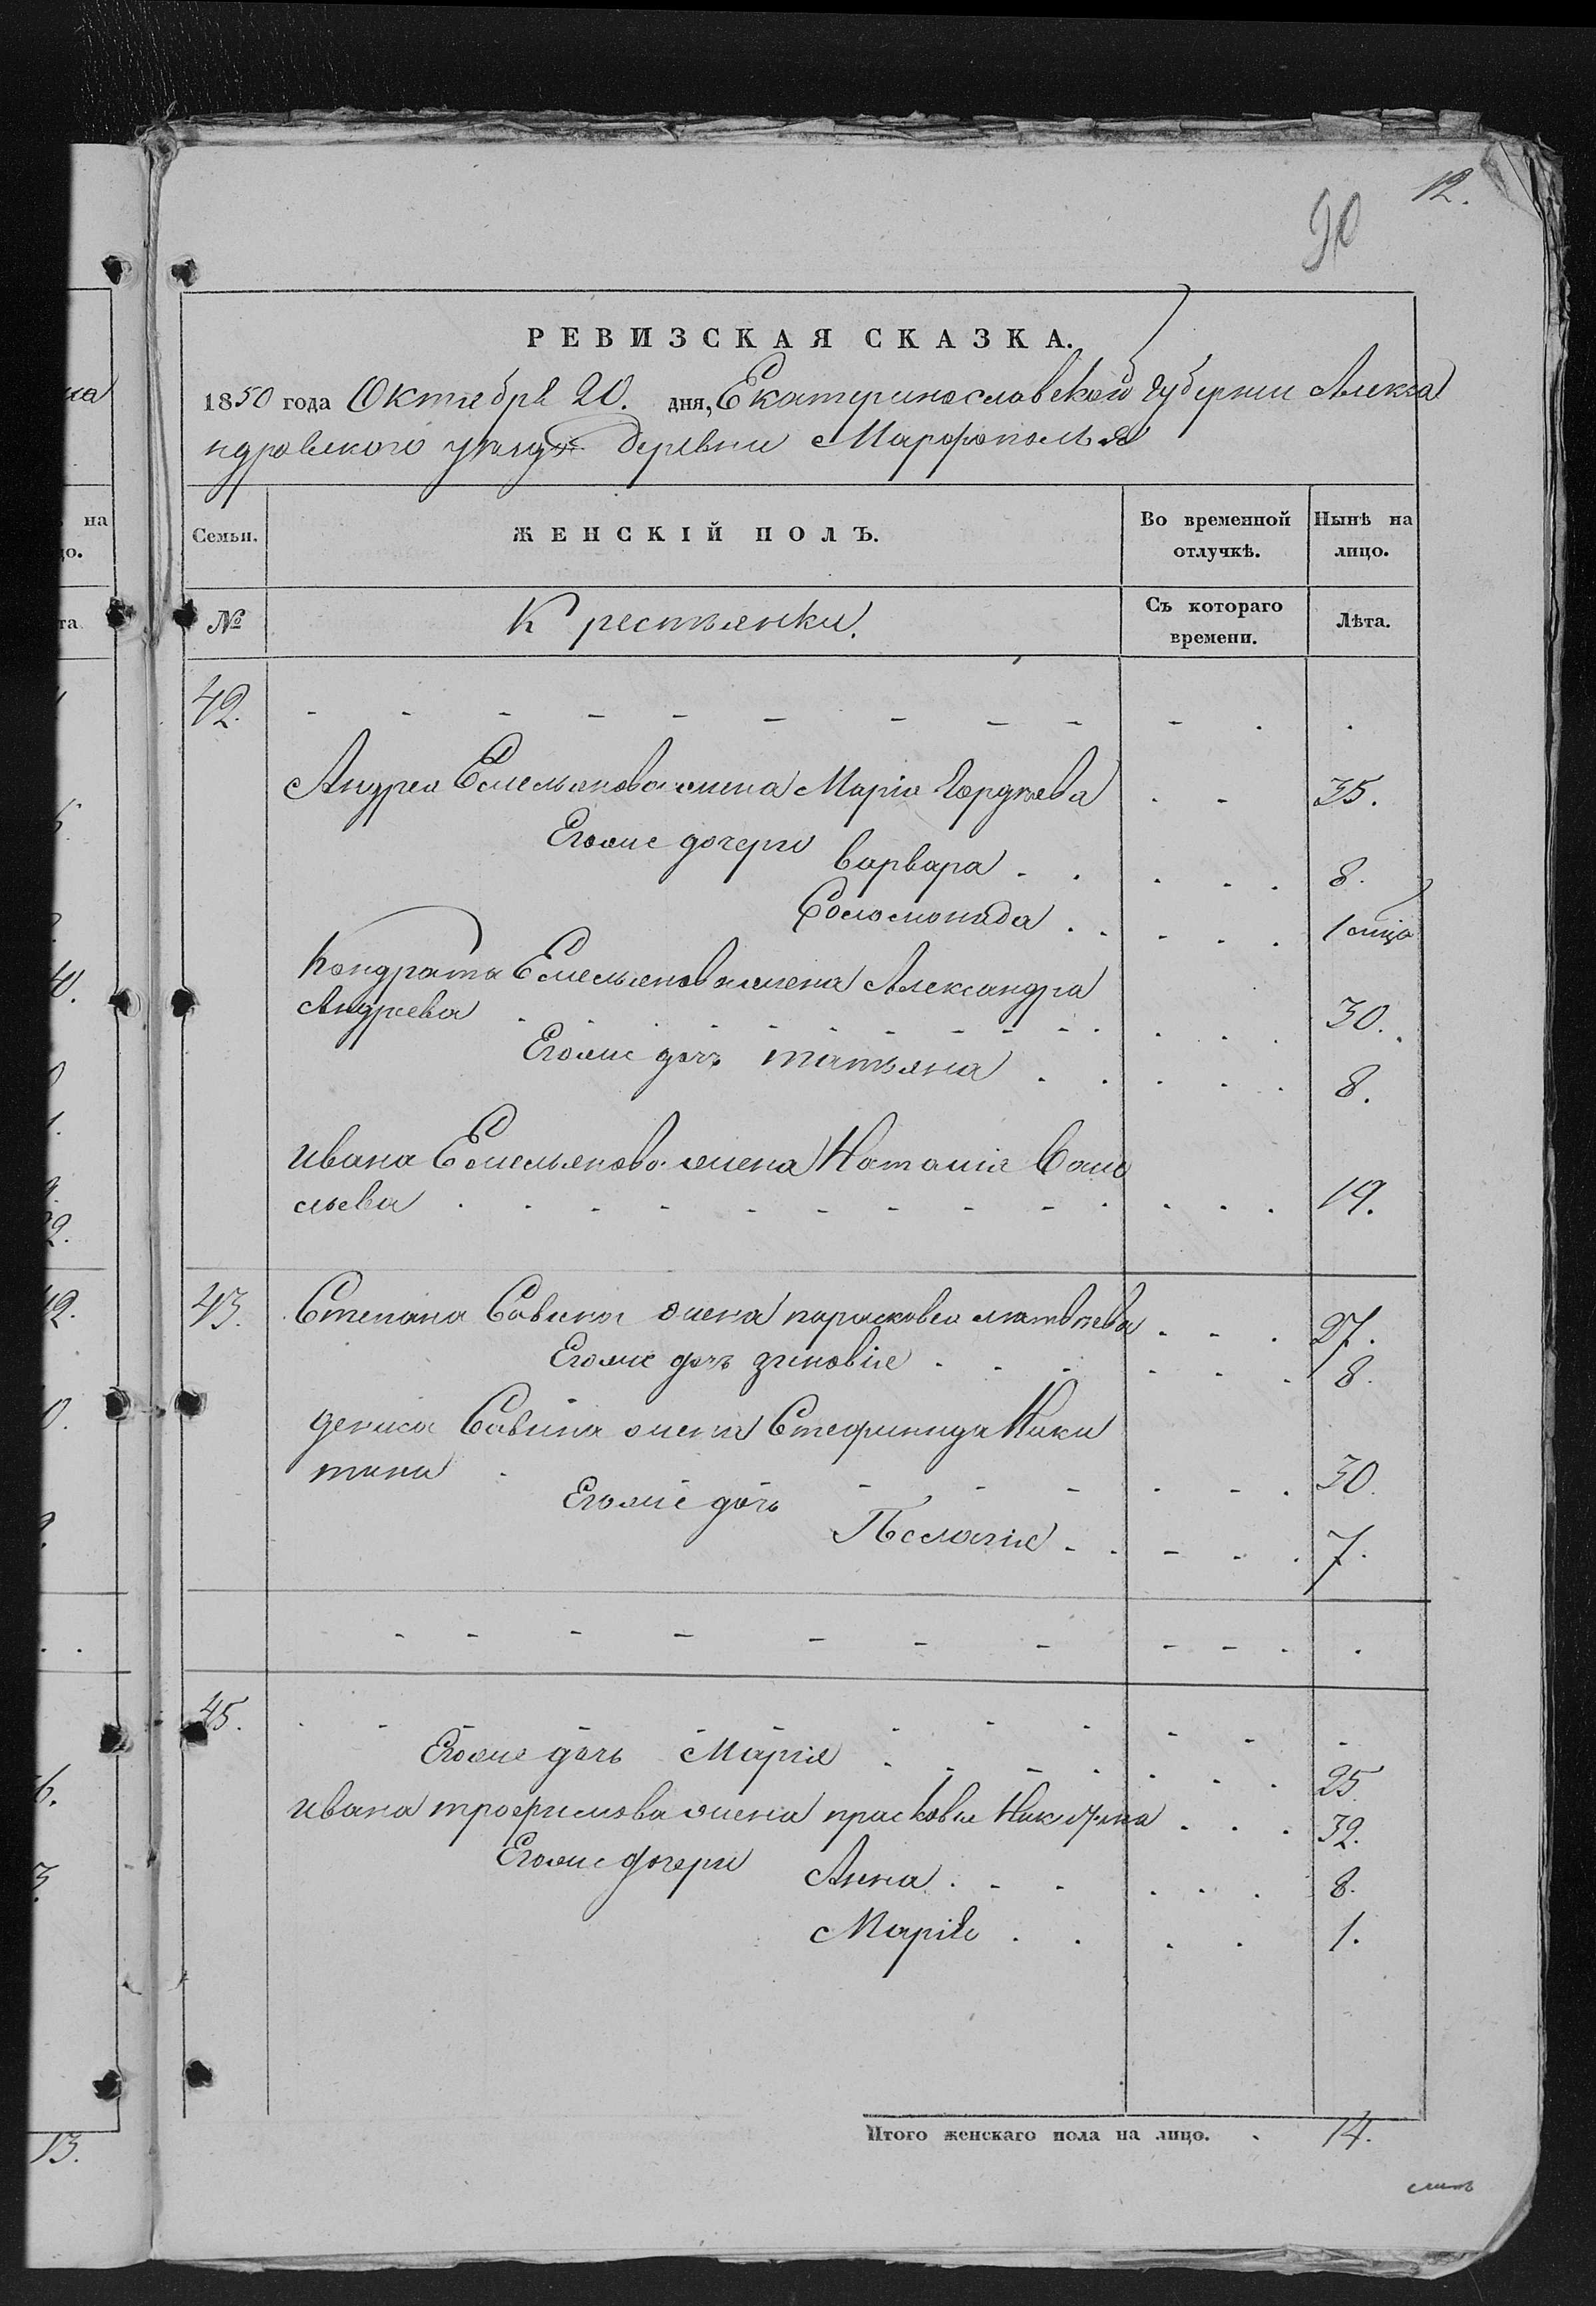 12.
90
РЕВИЗСКАЯ СКАЗКА.
1850 года Октября 20. дня, Екатеринославской губернии Алекса
ндровского уезда деревни Марфополя
Семьи. ЖЕНСКІЙ ПОЛЪ. Во временной отлучкѣ. Нынѣ на лицо.
№ Крестьянки. Съ котораго времени. Лѣта.
42.
Андрея Емельянова жена Марія Гордѣева 35.
Егоже дочери Варвара 8.
Соломонида 1 мѣца
Кондрата Емельянова жена Александра
Андреева 30.
Егоже дочь татьяна 8.
Ивана Емельянова жена Наталия Васи
льева 19.
43. Степана Савина жена парасковея матвѣева 27.
Егоже дочь зиновія 8.
дениса Савина жена Стефинида Ники
тина 30.
Егоже дочь
Пелагія 7.
45.
Егоже дочь Марія 25
Ивана трофимова жена прасковья Никитина 32.
Егоже дочери Анна 8.
Марія 1.
Итого женскаго пола на лицо. 14.
на
цо.
та
13.